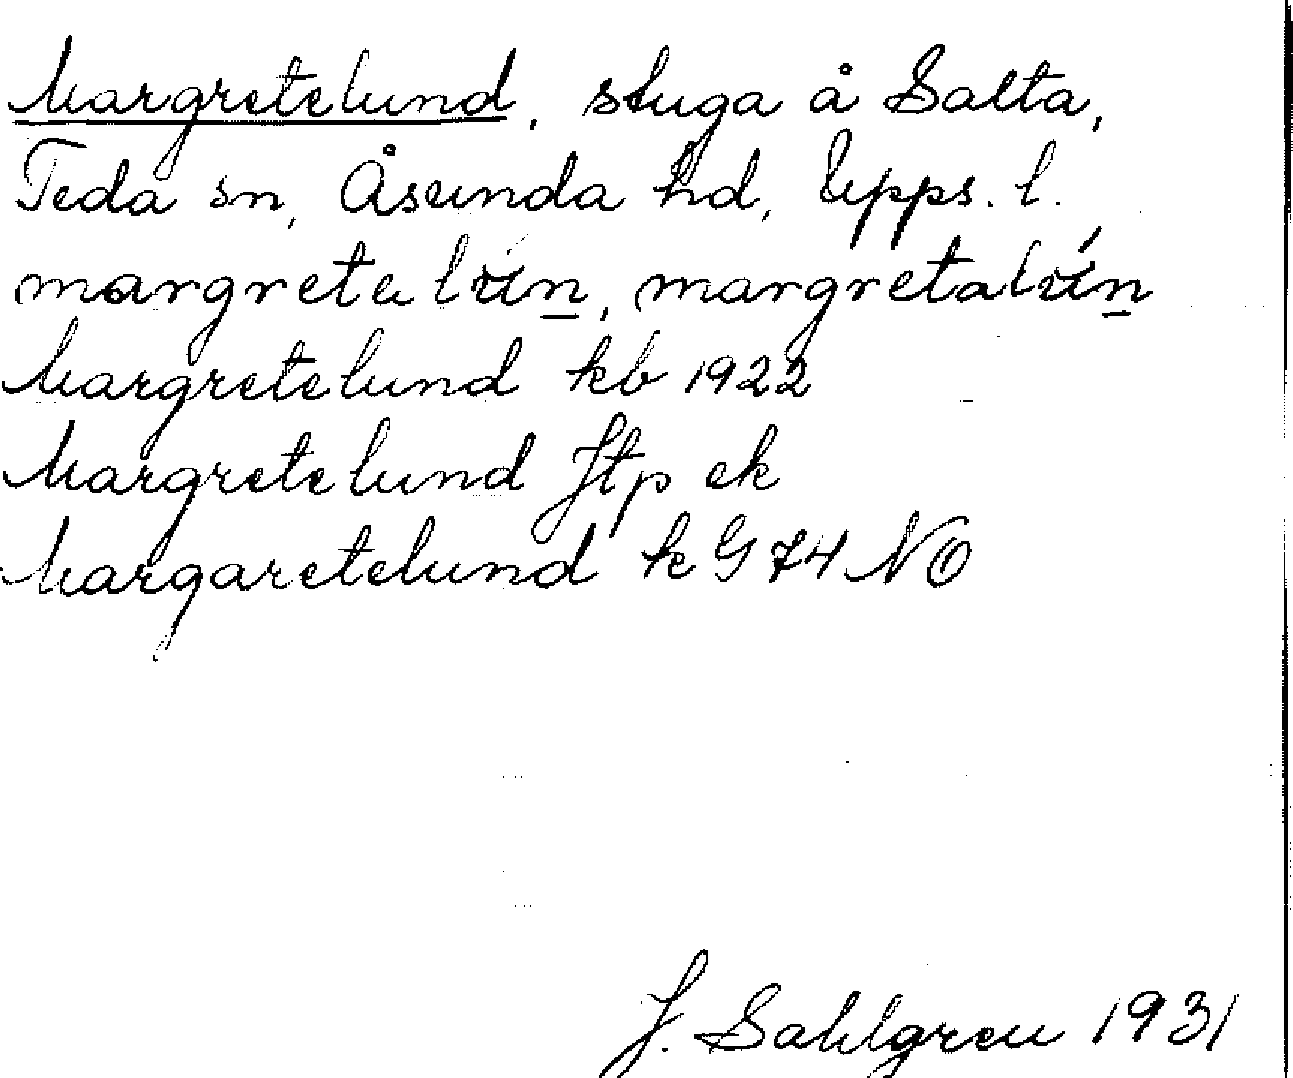 Margretelund, stuga å Salta,
Teda sn, Åsunda hd, Upps. l.
margretelún, margretalún
Margretelund kb 1922
Margretelund Jtp ek
Margaretelund k G 74 NO
J. Sahlgren 1931